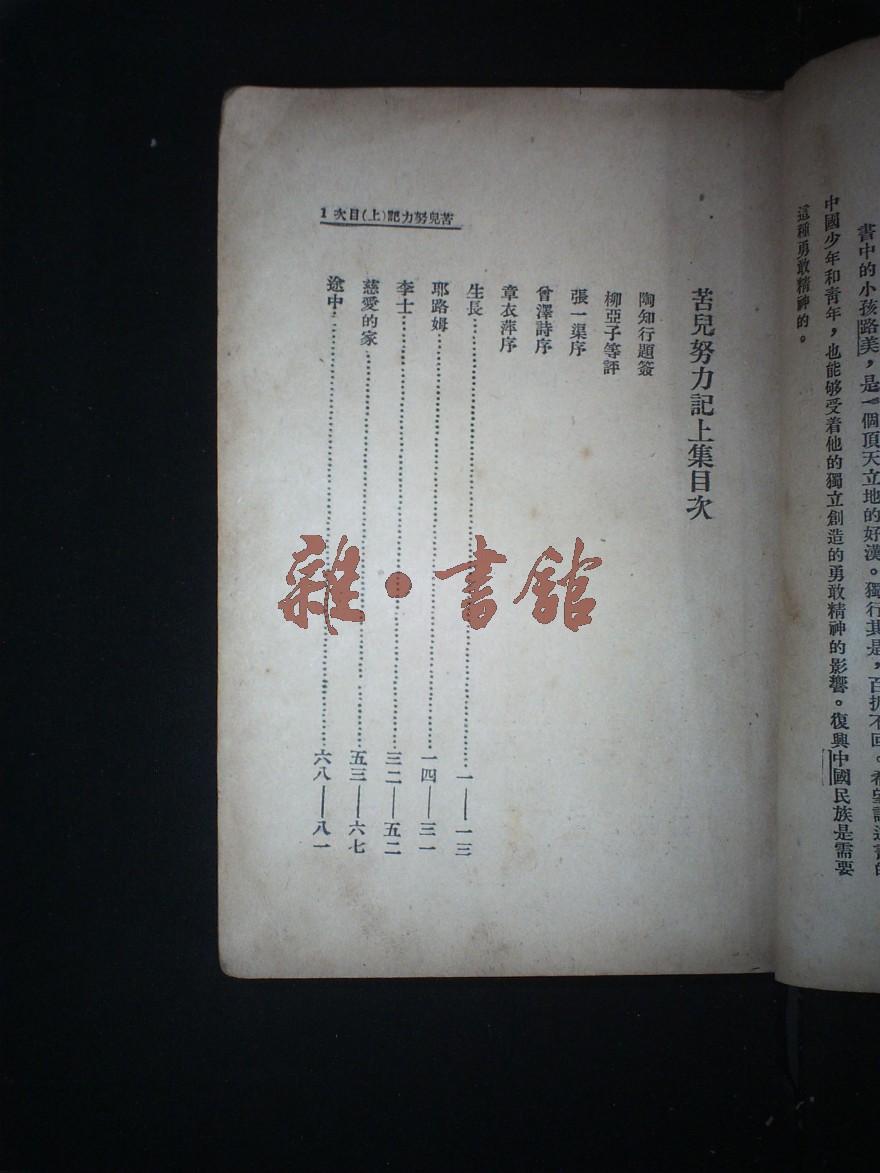 書中的小孩路美，是一個頂天立地的好漢。獨行其是，百折不回。希望讀這書的
中國少年和青年，也能够受着他的獨立創造的勇敢精神的影響。復興中國民族是需要
這種勇敢精神的。
苦兒努力記(上)目次 1
苦兒努力記上集目次
陶知行題簽
柳亞子等評
張一渠序
曾澤詩序
章衣萍序
生長……一——一三
耶路姆……一四——三一
李士……三二——五二
慈愛的家……五三——六七
途中……六八——八一
雜·書館